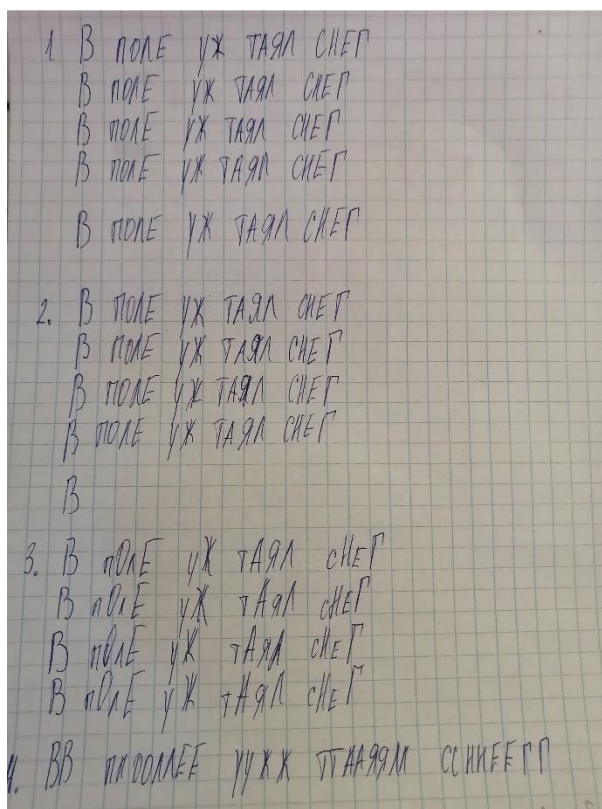 1 В ПОЛЕ УЖ ТАЯЛ СНЕГ
В ПОЛЕ УЖ ТАЯЛ СНЕГ
В ПОЛЕ УЖ ТАЯЛ СНЕГ
В ПОЛЕ УЖ ТАЯЛ СНЕГ
В ПОЛЕ УЖ ТАЯЛ СНЕГ
2. В ПОЛЕ УЖ ТАЯЛ СНЕГ
В ПОЛЕ УЖ ТАЯЛ СНЕГ
В ПОЛЕ УЖ ТАЯЛ СНЕГ
В ПОЛЕ УЖ ТАЯЛ СНЕГ
В
3. В пОлЕ уЖ тАяЛ сНеГ
В пОлЕ уЖ тАяЛ сНеГ
В пОлЕ уЖ тАяЛ сНеГ
В пОлЕ уЖ тАяЛ сНеГ
4. ВВ ППООЛЛЕЕ УУЖЖ ТТААЯЯЛЛ ССННЕЕГГ